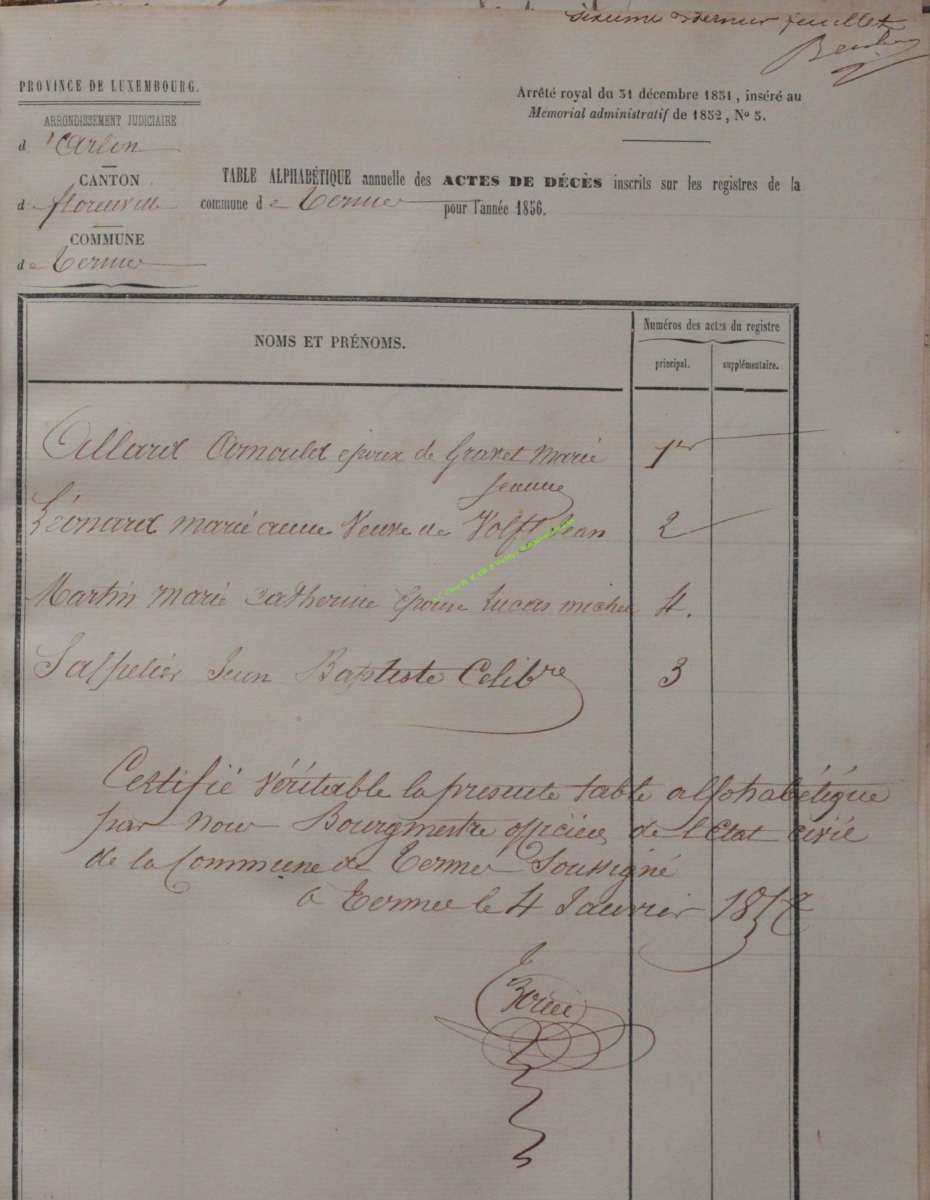 sixième & dernier feuillet
PROVINCE DE LUXEMBOURG.
Arrêté royal du 31 décembre 1851, inséré au
Mémorial administratif de 1852, No 5.
ARRONDISSEMENT JUDICIAIRE
d'Arlon
CANTON
de florenville
COMMUNE
de Termes
TABLE ALPHABÉTIQUE annuelle des ACTES DE DÉCÈS inscrits sur les registres de la
commune de Termes pour l'année 1856.
NOMS ET PRÉNOMS.
Numéros des actes du registre
principal.
supplémentaire.
Allard Arnould époux de Gravet Marie 1er
Jeanne
Léonard marie anne Veuve de Wolff Jean 2
Martin marie Catherine Epouse Lucas michel 4.
Salpetier Jean Baptiste Celibre 3
Certifié Véritable la présente table alphabétique
par nous Bourgmestre officier de l'Etat civil
de la Commune de Termes Soussigné
a Termes le 4 Janvier 1857